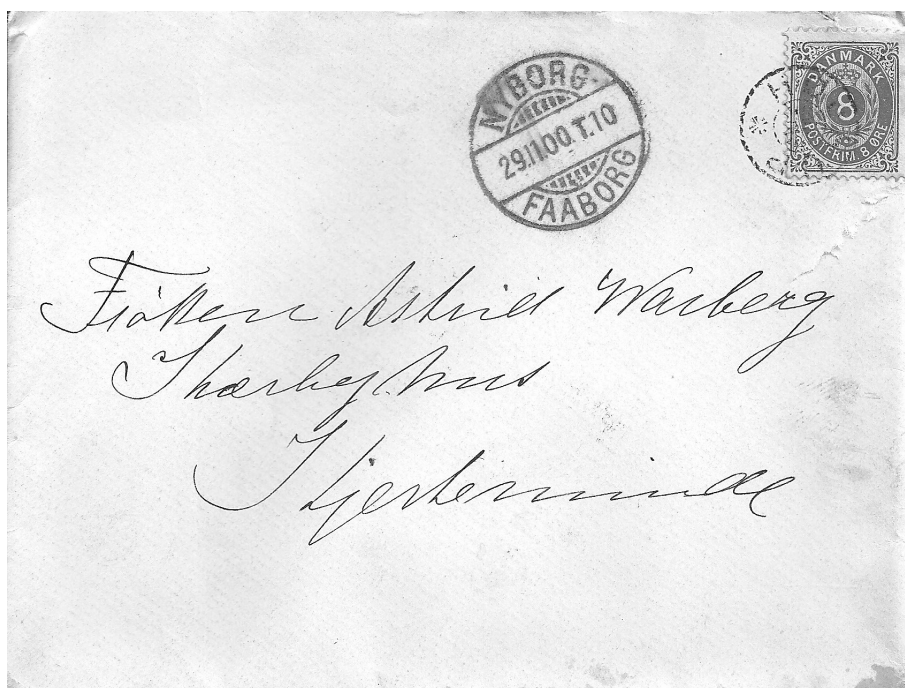 NYBORG-
29.11.00.T.10
FAABORG
DANMARK
8
POSTFRIM. 8 ØRE
Frøken Astrid Warberg
Kærbyhus
Kjerteminde